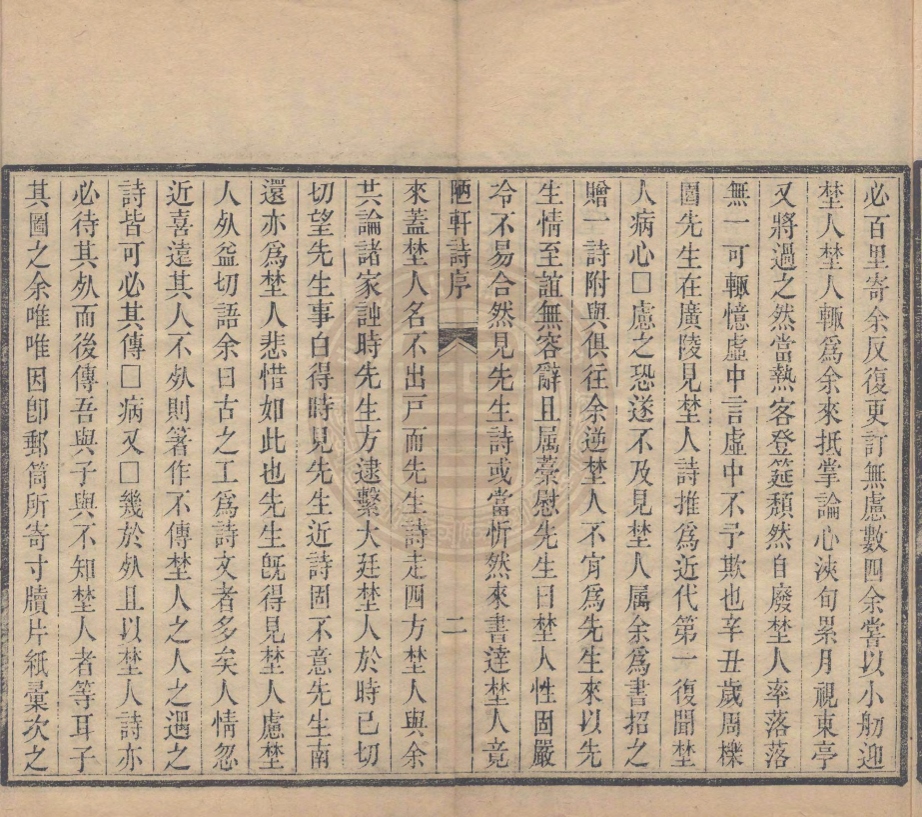 必百里寄余反復更訂無慮數四余嘗以小舠迎
埜人埜人輒爲余來抵掌論心浹旬累月視東亭
又將過之然當熱客登筵頽然自廢埜人率落落
無一可輒憶虛中言虛中不予欺也辛丑歲周櫟
園先生在廣陵見埜人詩推爲近代第一復聞埜
人病心□慮之恐遂不及見埜人属余爲書招之
贈一詩附與俱往余逆埜人不肎爲先生來以先
生情至誼無容辭且属藁慰先生曰埜人性固嚴
冷不易合然見先生詩或當忻然來書達埜人竟
陋軒詩序 二
來蓋埜人名不出戸而先生詩走四方埜人與余
共論諸家詩時先生方逮繫大廷埜人於時已切
切望先生事白得時見先生近詩固不意先生南
還亦爲埜人悲惜如此也先生旣得見埜人慮埜
人𣦸益切語余曰古之工爲詩文者多矣人情忽
近喜遠其人不𣦸則著作不傳埜人之人之遇之
詩皆可必其傳□病又□幾於𣦸且以埜人詩亦
必待其𣦸而後傳吾與子與不知埜人者等耳子
其圖之余唯唯因卽郵筒所寄寸牘片紙彙次之